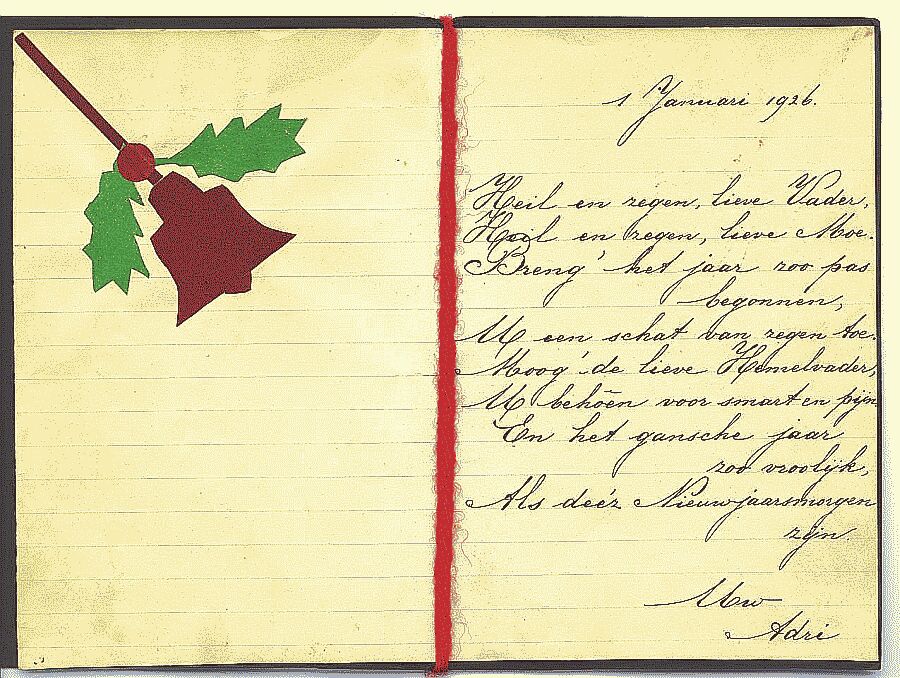 1 Januari 1926.
Heil en zegen, lieve Vader,
Heil en zegen, lieve Moe.
Breng' het jaar zoo pas
begonnen,
U een schat van zegen toe.
Moog' de lieve Hemelvader,
U behoên voor smart en pijn
En het gansche jaar
zoo vroolijk,
Als deéz Nieuwjaarsmorgen
zijn.
Uw
Adri